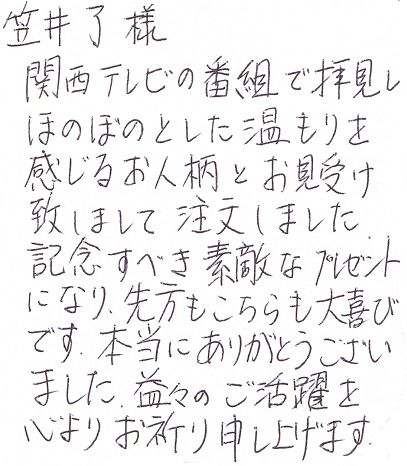 笠井了様
関西テレビの番組で拝見し
ほのぼのとした温もりを
感じるお人柄とお見受け
致しまして注文しました.
記念すべき素敵なプレゼント
になり、先方もこちらも大喜び
です.本当にありがとうござい
ました.益々のご活躍を
心よりお祈り申し上げます.